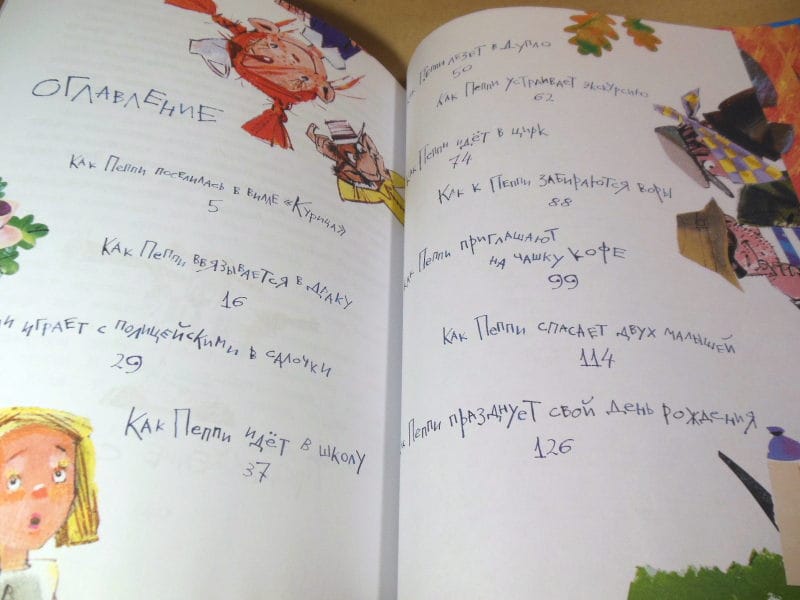 ОГЛАВЛЕНИЕ
Как Пеппи поселилась в вилле «Курица»
5
Как Пеппи ввязывается в драку
16
играет с полицейскими в салочки
29
Как Пеппи идёт в школу
37
Пеппи лезет в дупло
50
Как Пеппи устраивает экскурсию
62
Как Пеппи идёт в цирк
74
Как к Пеппи забираются воры
88
Как Пеппи приглашают
на чашку кофе
99
Как Пеппи спасает двух малышей
114
Пеппи празднует свой день рождения
126